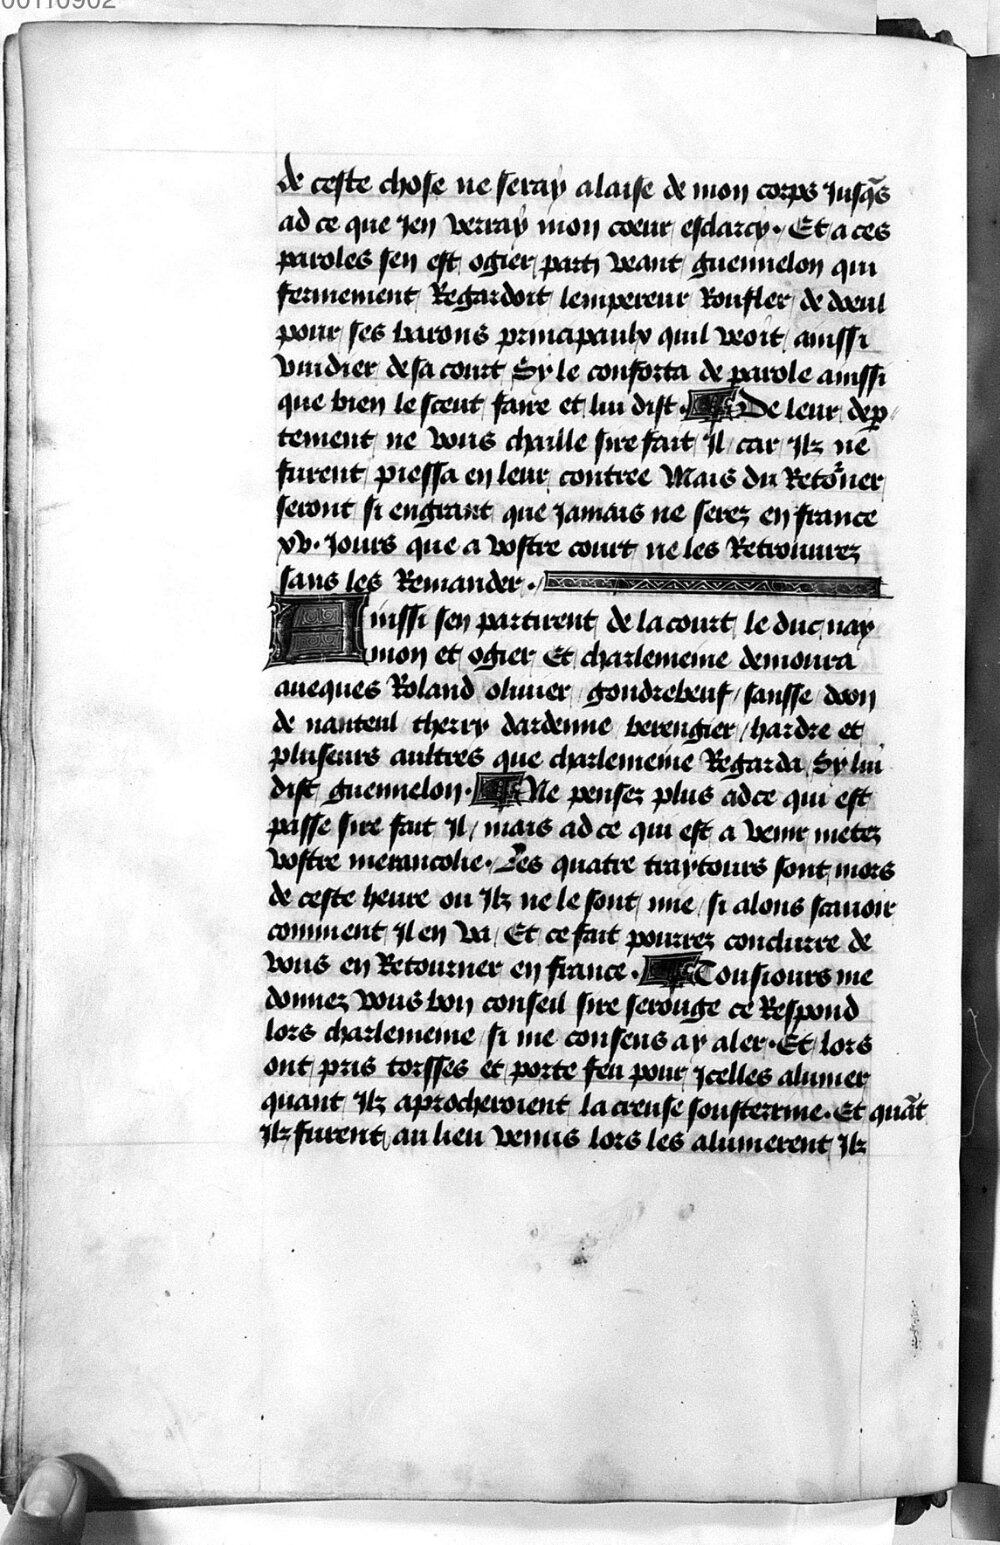 00110902
de ceste chose ne seray alaise de mon corps Jusqs̄
ad ce que Jen verray mon coeur esclarcy. Et a ces
paroles sen est ogier parti veant guennelon qui
fermement Regardoit lempereur Roufler de doeul
pour ses barons principaulx quil veoit ainssi
vuidier de sa court Sy le conforta de parole ainssi
que bien le sceut faire et lui dist. De leur dep̱
tement ne vous chaille sire fait Il car Ilz ne
furent piessa en leur contree Mais du Reto᷑ner
seront si engrant que Jamais ne serez en france
xv. Jours que a vostre court ne les Retrouurez
sans les Remander.
Ainssi sen partirent de la court le duc nay
mon et ogier Et charlemeine demoura
auecques Roland oliuier gondrebeuf sansse doon
de nanteul therry dardenne berengier hardre et
pluseurs aultres que charlemeine Regarda Sy lui
dist guennelon. Ne pensez plus adce qui est
passe sire fait Il mais ad ce qui est a venir metez
vostre merancolie. Les quatre traytours sont mors
de ceste heure ou Ilz ne le sont mie si alons scauoir
comment Il en va Et ce fait pourrez conclurre de
vous en Retourner en france. Tousiours me
donnez vous bon conseil sire serouge ce Respond
lors charlemeine si me consens ay aler. Et lors
ont pris torsses et porte feu pour Jcelles alumer
quant Ilz aprocheroient la creuse sousterrine. Et quāt
Ilz furent au lieu venus lors les alumerent Ilz